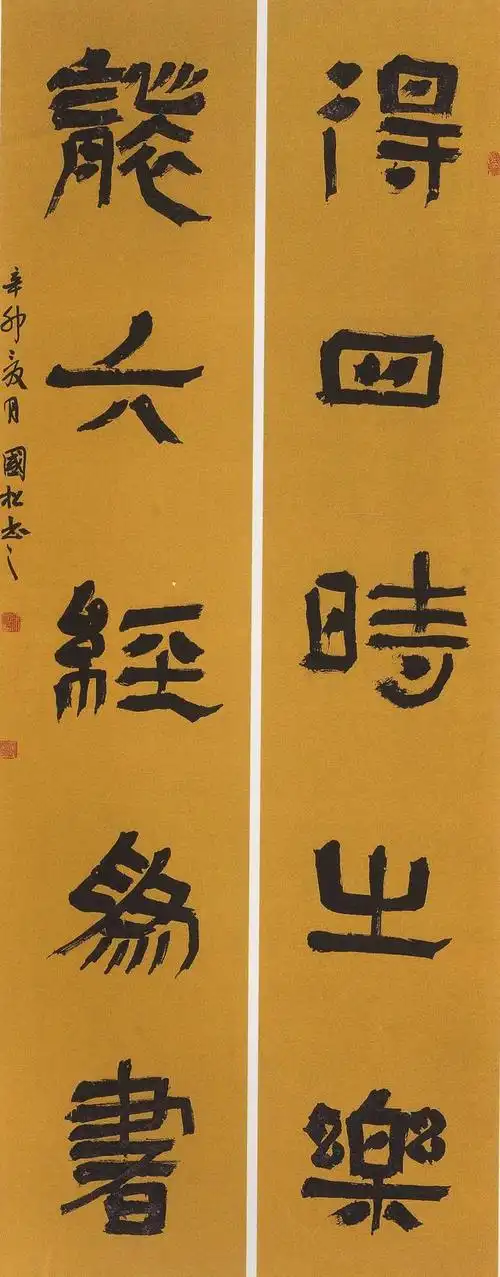 得四時之樂
六經為書
辛卯夏月國松書之